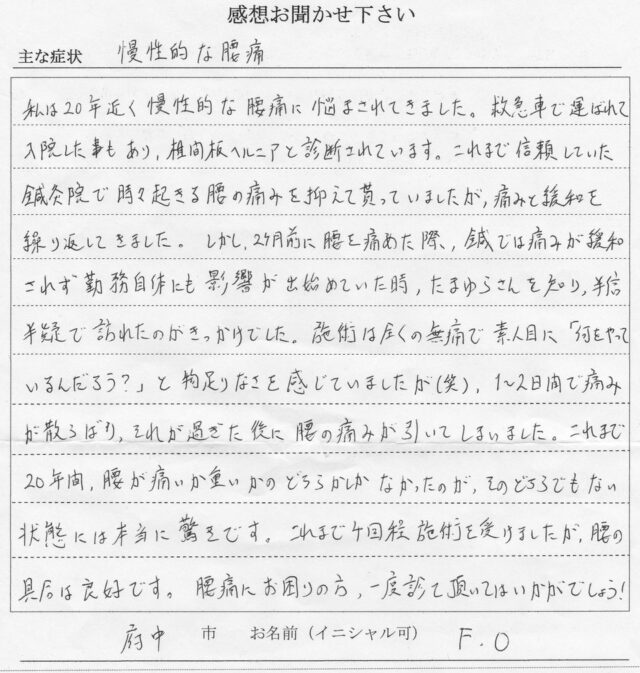 感想お聞かせ下さい
主な症状 慢性的な腰痛
私は20年近く慢性的な腰痛に悩まされてきました。救急車で運ばれて
入院した事もあり、椎間板ヘルニアと診断されています。これまで信頼していた
鍼灸院で時々起きる腰の痛みを抑えて貰っていましたが、痛みと緩和を
繰り返してきました。しかし、2ヶ月前に腰を痛めた際、鍼では痛みが緩和
されず勤務自体にも影響が出始めていた時、たまゆらさんを知り、半信
半疑で訪れたのがきっかけでした。施術は全くの無痛で素人目に「何をやって
いるんだろう?」と物足りなさを感じていましたが(笑)、1〜2日間で痛み
が散らばり、それが過ぎた後に腰の痛みが引いてしまいました。これまで
20年間、腰が痛いか重いかのどちらかしかなかったのが、そのどちらでもない
状態には本当に驚きです。これまで4回程施術を受けましたが、腰の
具合は良好です。腰痛にお困りの方、一度診て頂いてはいかがでしょう!
府中 市 お名前(イニシャル可) F.O